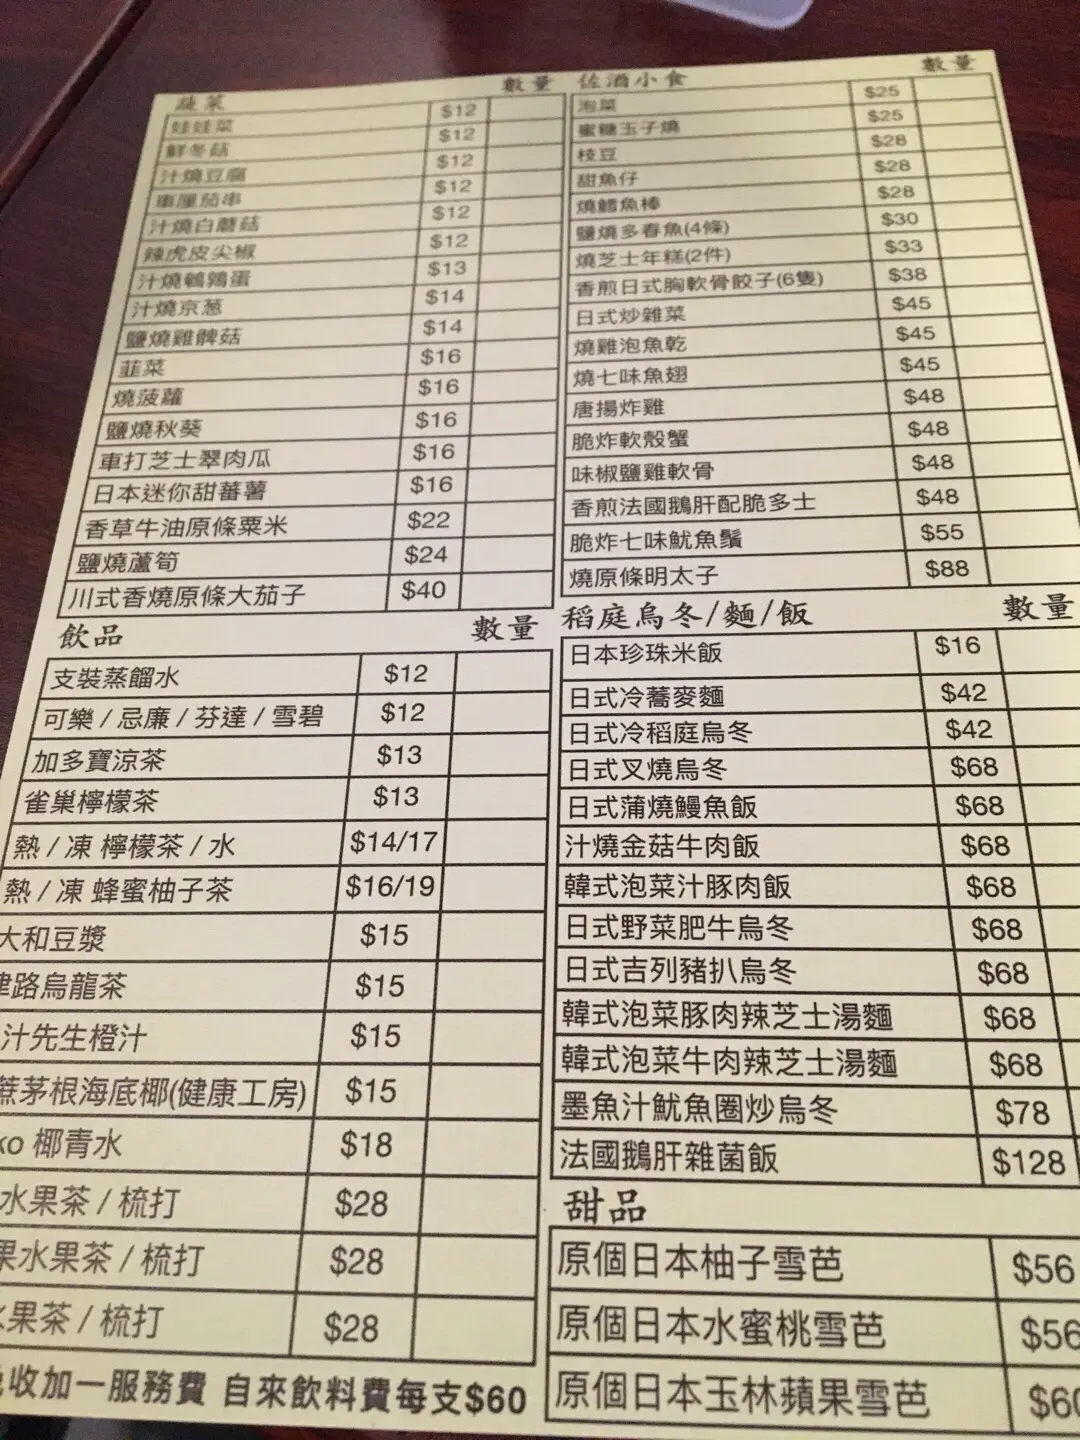 蔬菜 數量
娃娃菜 $12
鮮冬菇 $12
汁燒豆腐 $12
車厘茄串 $12
汁燒白蘑菇 $12
辣虎皮尖椒 $12
汁燒鵪鶉蛋 $13
汁燒京葱 $14
鹽燒雞髀菇 $14
韮菜 $16
燒菠蘿 $16
鹽燒秋葵 $16
車打芝士翠肉瓜 $16
日本迷你甜蕃薯 $16
香草牛油原條粟米 $22
鹽燒蘆筍 $24
川式香燒原條大茄子 $40
飲品 數量
支裝蒸餾水 $12
可樂 / 忌廉 / 芬達 / 雪碧 $12
加多寶涼茶 $13
雀巢檸檬茶 $13
熱 / 凍 檸檬茶 / 水 $14/17
熱 / 凍 蜂蜜柚子茶 $16/19
大和豆漿 $15
路烏龍茶 $15
汁先生橙汁 $15
蔗茅根海底椰(健康工房) $15
ko 椰青水 $18
水果茶 / 梳打 $28
果水果茶 / 梳打 $28
果茶 / 梳打 $28
收加一服務費 自來飲料費每支$60
佐酒小食 數量
泡菜 $25
蜜糖玉子燒 $25
枝豆 $28
甜魚仔 $28
燒鱈魚棒 $28
鹽燒多春魚(4條) $30
燒芝士年糕(2件) $33
香煎日式胸軟骨餃子(6隻) $38
日式炒雜菜 $45
燒雞泡魚乾 $45
燒七味魚翅 $45
唐揚炸雞 $48
脆炸軟殼蟹 $48
味椒鹽雞軟骨 $48
香煎法國鵝肝配脆多士 $48
脆炸七味魷魚鬚 $55
燒原條明太子 $88
稻庭烏冬/麵/飯 數量
日本珍珠米飯 $16
日式冷蕎麥麵 $42
日式冷稻庭烏冬 $42
日式叉燒烏冬 $68
日式蒲燒鰻魚飯 $68
汁燒金菇牛肉飯 $68
韓式泡菜汁豚肉飯 $68
日式野菜肥牛烏冬 $68
日式吉列豬扒烏冬 $68
韓式泡菜豚肉辣芝士湯麵 $68
韓式泡菜牛肉辣芝士湯麵 $68
墨魚汁魷魚圈炒烏冬 $78
法國鵝肝雜菌飯 $128
甜品
原個日本柚子雪芭 $56
原個日本水蜜桃雪芭 $56
原個日本玉林蘋果雪芭 $60